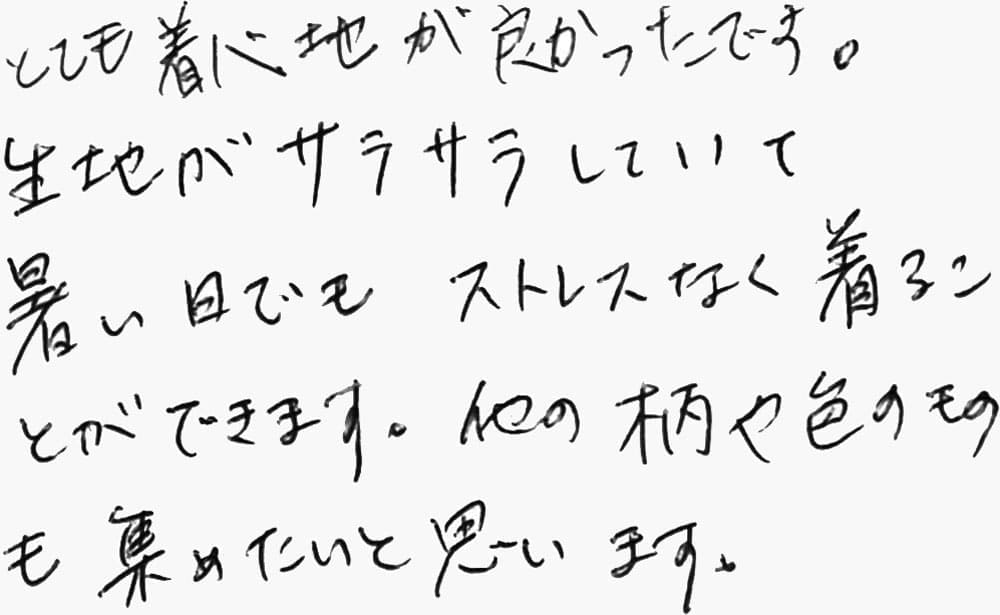 とても着心地が良かったです。
生地がサラサラしていて
暑い日でもストレスなく着るこ
とができます。他の柄や色のもの
も集めたいと思います。